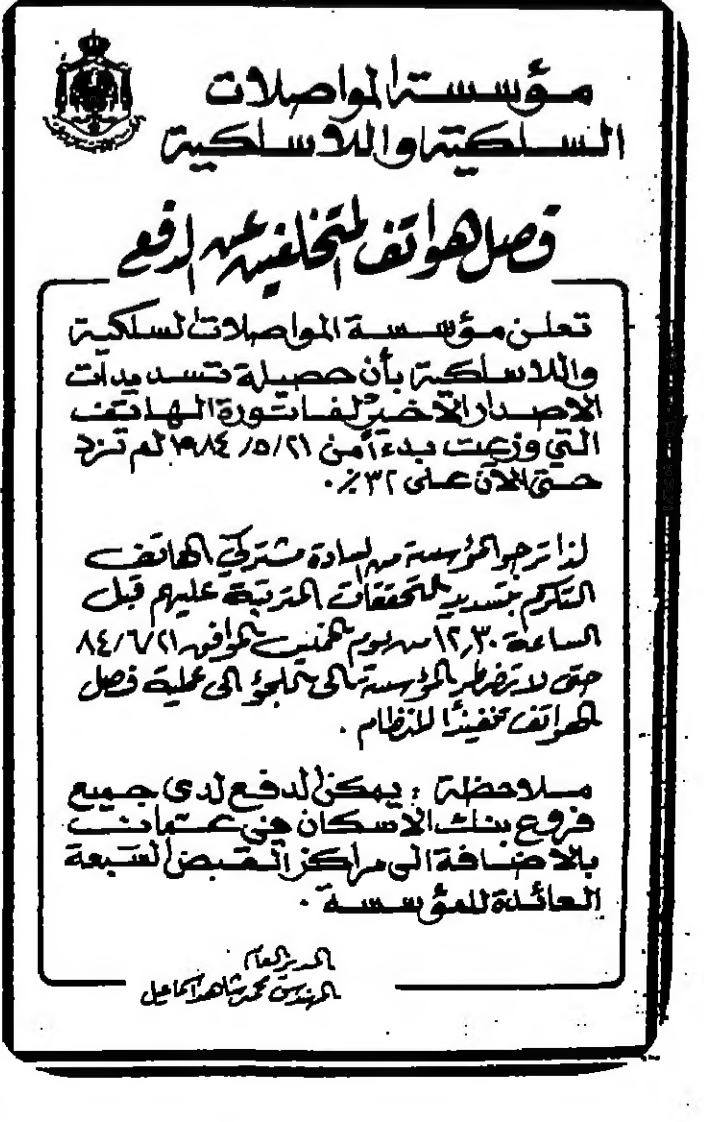 مؤسسة المواصلات
السلكية واللاسلكية
فصل هواتف المتخلفين عن الدفع
تعلن مؤسسة المواصلات السلكية
واللاسلكية بأن حصيلة تسديدات
الاصدار الأخير لفاتورة الهاتف
التي وزعت بدءاً من ٢١/٥/١٩٨٤ لم تزد
حتى الآن على ٣٢٪.
لذا ترجو المؤسسة من السادة مشتركي الهاتف
التكرم بتسديد المتحققات المترتبة عليهم قبل
الساعة ١٢,٣٠ من يوم الخميس الموافق ٢١/٦/٨٤
حتى لا تضطر المؤسسة الى اللجؤ الى عملية فصل
الهواتف تنفيذًا للنظام.
ملاحظة : يمكن الدفع لدى جميع
فروع بنك الاسكان في عمان
بالاضافة الى مراكز القبض السبعة
العائدة للمؤسسة.
المدير العام
المهندس محمد شاهد اسماعيل